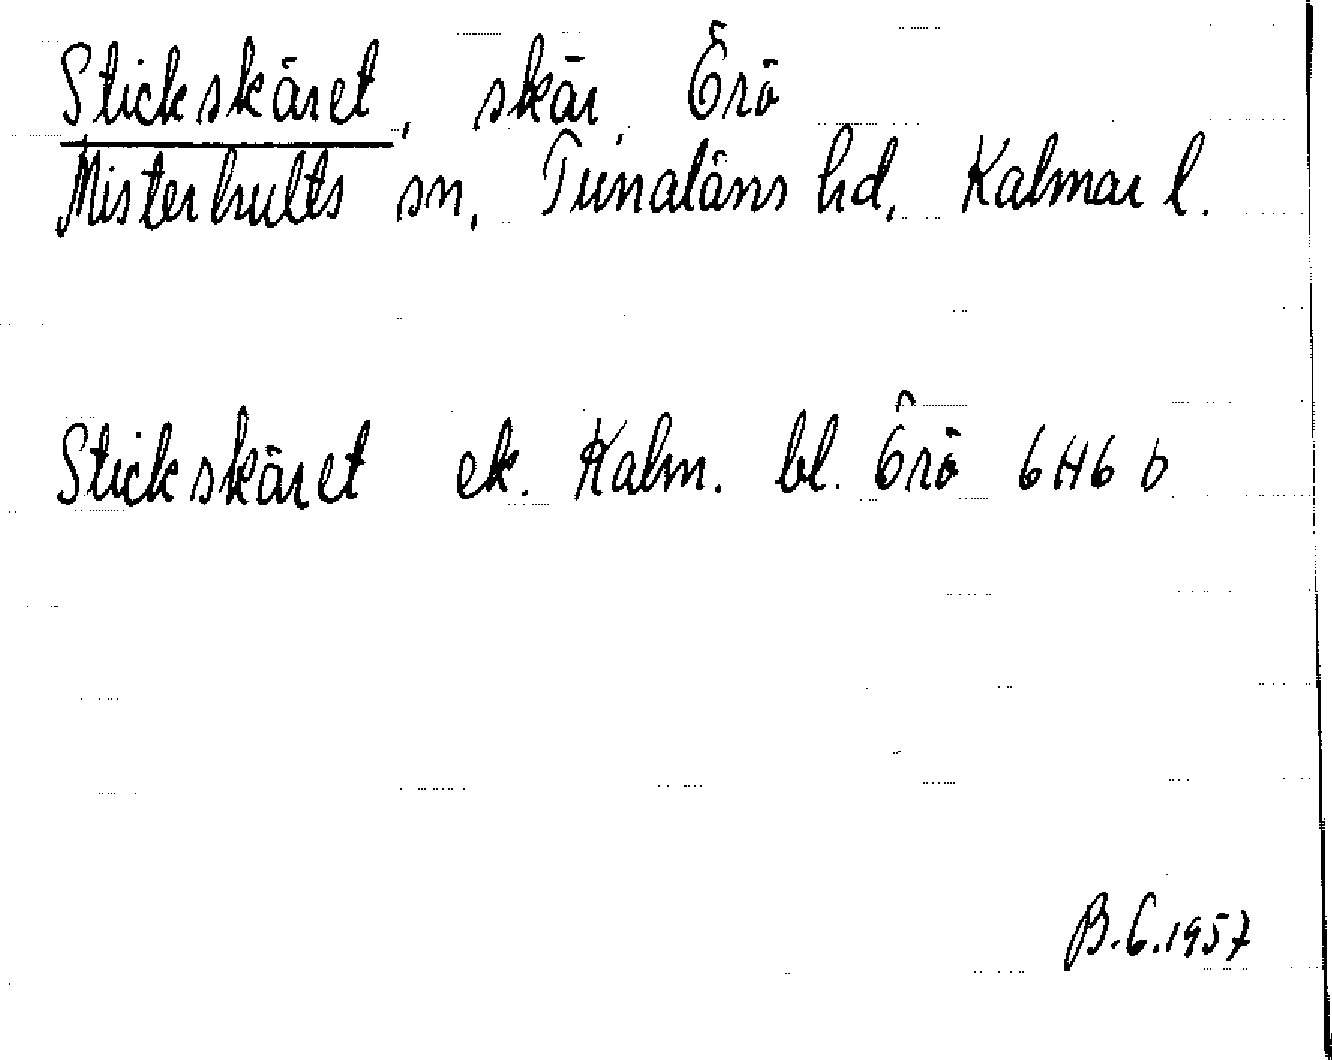 Stickskäret, skär, Örö
Misterhults sn, Tunaläns hd, Kalmar l.
Stickskäret ek. Kalm. bl. Örö 6H6 b
B.G.1957